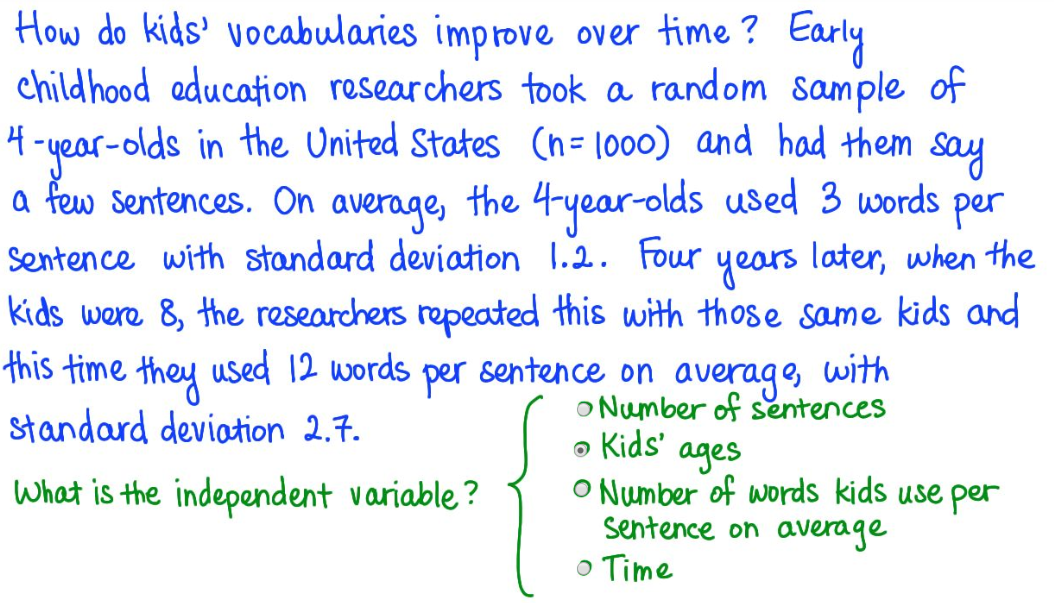 How do kids' vocabularies improve over time? Early
childhood education researchers took a random sample of
4-year-olds in the United States (n=1000) and had them say
a few sentences. On average, the 4-year-olds used 3 words per
sentence with standard deviation 1.2. Four years later, when the
kids were 8, the researchers repeated this with those same kids and
this time they used 12 words per sentence on average, with
standard deviation 2.7.
What is the independent variable?
Number of sentences
Kids' ages
Number of words kids use per
sentence on average
Time